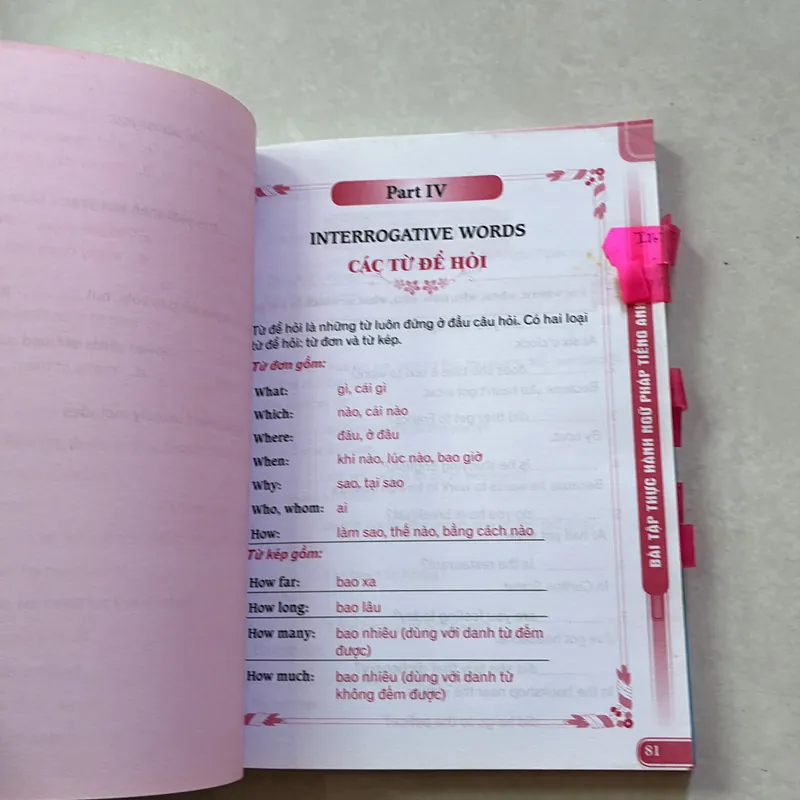 Part IV
INTERROGATIVE WORDS
CÁC TỪ ĐỂ HỎI
Từ để hỏi là những từ luôn đứng ở đầu câu hỏi. Có hai loại
từ để hỏi: từ đơn và từ kép.
Từ đơn gồm:
What: gì, cái gì
Which: nào, cái nào
Where: đâu, ở đâu
When: khi nào, lúc nào, bao giờ
Why: sao, tại sao
Who, whom: ai
How: làm sao, thế nào, bằng cách nào
Từ kép gồm:
How far: bao xa
How long: bao lâu
How many: bao nhiêu (dùng với danh từ đếm
được)
How much: bao nhiêu (dùng với danh từ
không đếm được)
BÀI TẬP THỰC HÀNH NGỮ PHÁP TIẾNG ANH
81